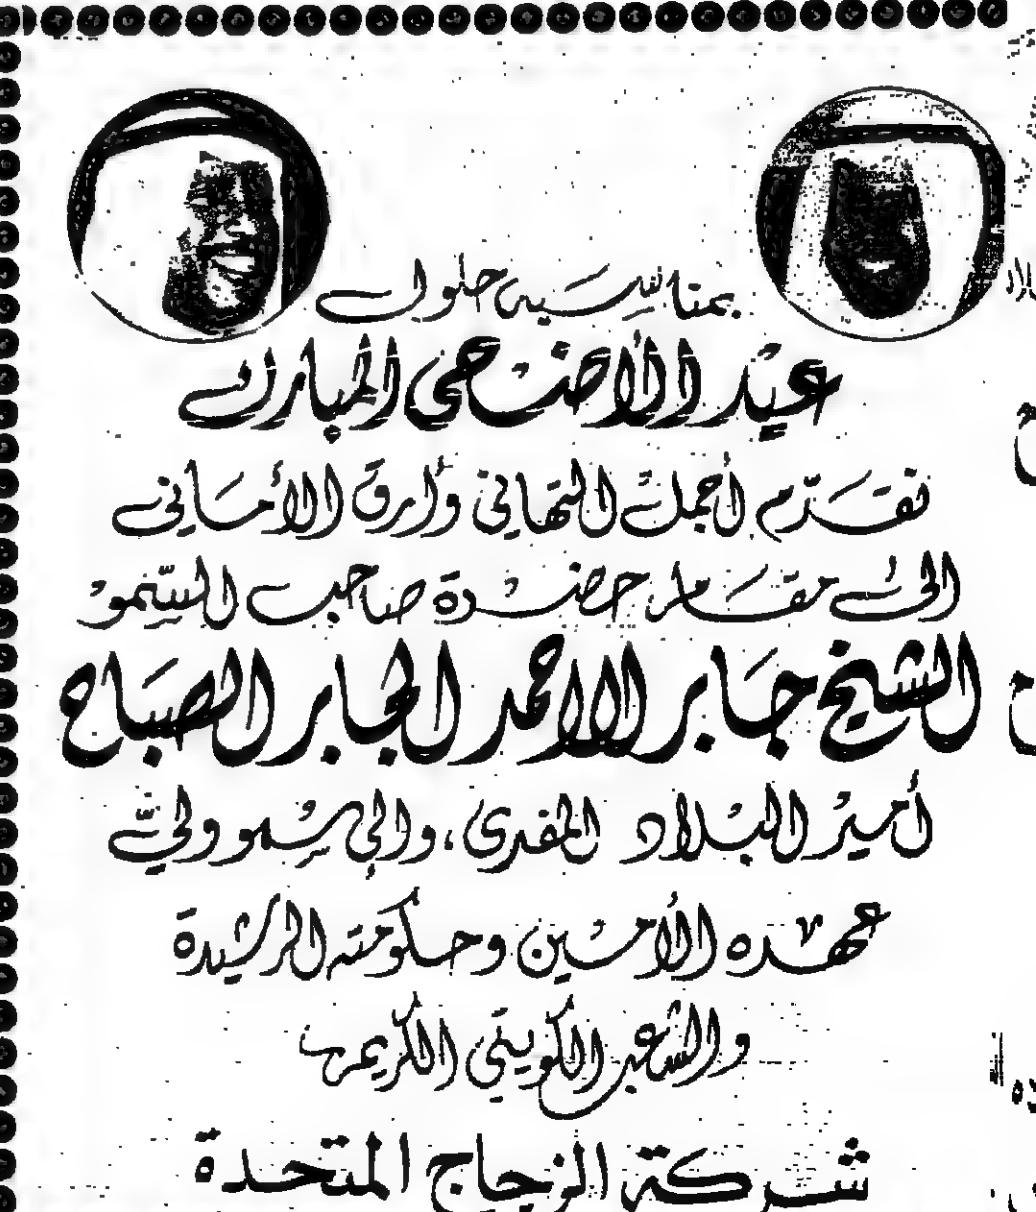 بمناسبة حلول
عيد الأضحى المبارك
نقدّم أجمل التهاني وأرق الأماني
الى مقام حضرة صاحب السّمو
الشيخ جابر الاحمد الجابر الصباح
أمير البلاد المفدى، والى سمو وليّ
عهده الأمين وحكومته الرشيدة
والشعب الكويتي الكريم
شركة الزجاج المتحدة